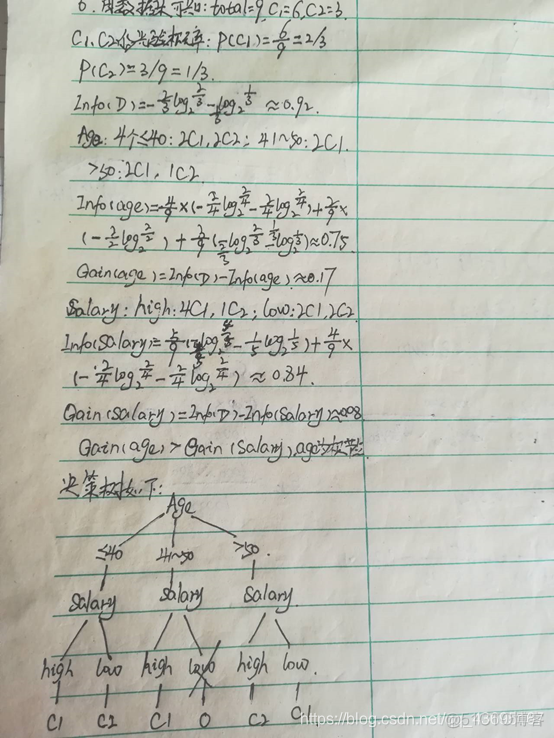 6. 由数据知: total=9, C1=6, C2=3.
C1、C2 先验概率: P(C1)=6/9=2/3
P(C2)=3/9=1/3.
Info(D)=-2/3log₂2/3-1/3log₂1/3≈0.92.
Age: 4个≤40: 2C1, 2C2; 41~50: 2C1.
>50: 2C1, 1C2.
Info(age)=4/9×(-2/4log₂2/4-2/4log₂2/4)+2/9×
(-2/2log₂2/2)+3/9(-2/3log₂2/3-1/3log₂1/3)≈0.75.
Gain(age)=Info(D)-Info(age)≈0.17
Salary: high: 4C1, 1C2; low: 2C1, 2C2.
Info(Salary)=5/9(-4/5log₂4/5-1/5log₂1/5)+4/9×
(-2/4log₂2/4-2/4log₂2/4)≈0.84.
Gain(Salary)=Info(D)-Info(Salary)≈0.08
Gain(age)>Gain(Salary), age为
决策树如下:
Age
≤40 41~50 >50
Salary Salary Salary
high low high low high low
C1 C2 C1 0 C2 C1
https://blog.csdn.net/